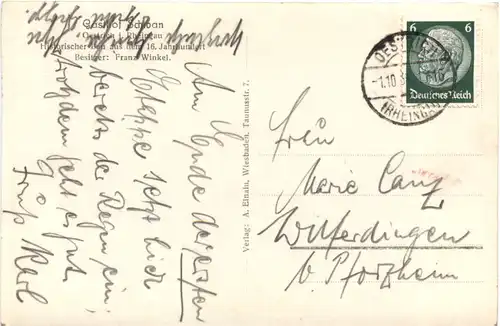 Gasthof Schwan
Oestrich i. Rheingau
Historischer Bau aus dem 16. Jahrhundert
Besitzer: Franz Winkel.
Am Ende der ersten
Etappe setzt sich
bereits der Regen ein;
trotzdem geht es gut.
Gruß Karl
Verlag: A. Elnain, Wiesbaden, Taunusstr. 7.
6 6
Deutsches Reich
OESTRICH
-1.10.3
(RHEINGAU)
Frau
Marie Lanz
Wilferdingen
b Pforzheim